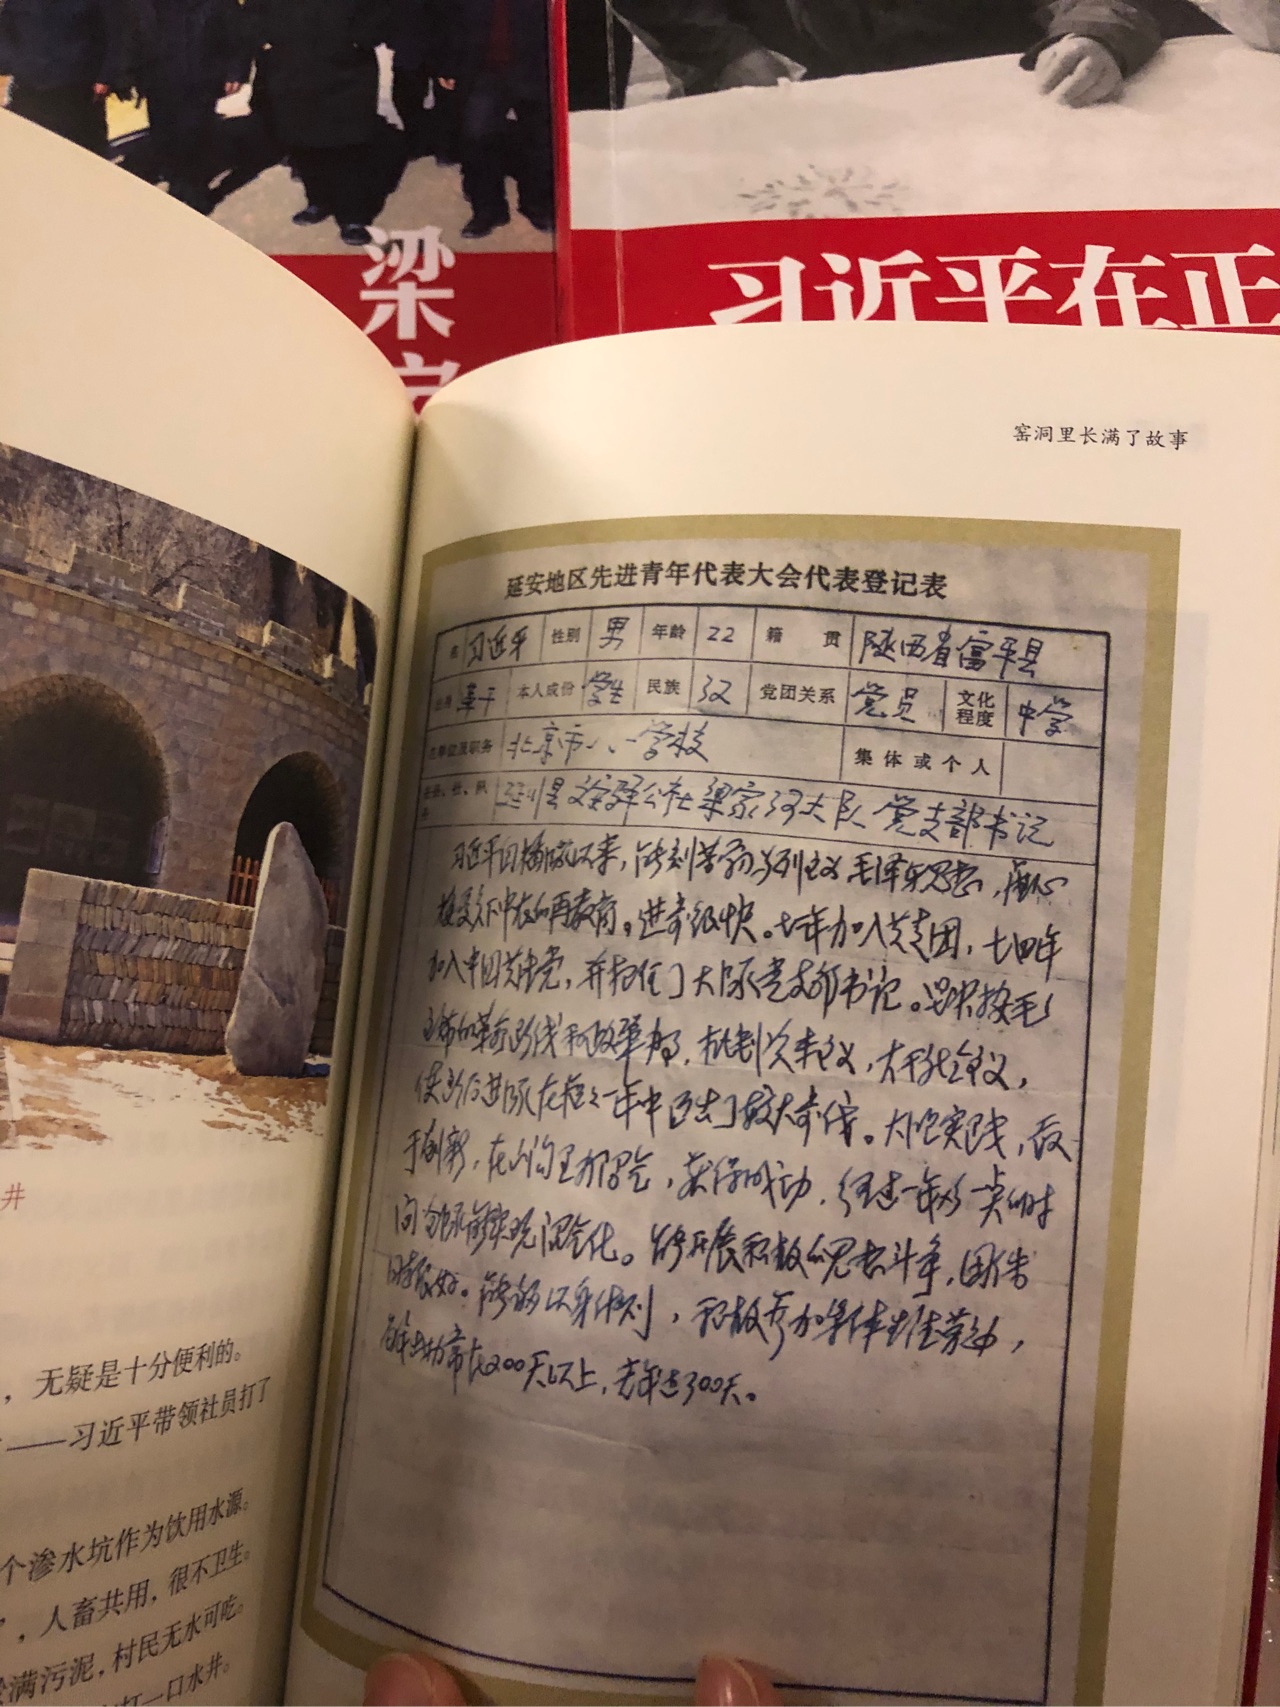 梁
习近平在正
窑洞里长满了故事
延安地区先进青年代表大会代表登记表
名 习近平 性别 男 年龄 22 籍贯 陕西省富平县
出身 革干 本人成份 学生 民族 汉 党团关系 党员 文化程度 中学
单位及职务 北京市八一学校 集体或个人
延川县文安驿公社梁家河大队党支部书记
习近平同志插队以来，能刻苦学习马列主义毛泽东思想，虚心
接受贫下中农的再教育。进步很快。七三年加入共青团，七四年
加入中国共产党，并担任了大队党支部书记。坚决按毛
主席的革命路线和政策办事，批判资本主义，大干社会主义，
使后进队在短短一年中迈出了较大步伐。大胆实践，敢
于创新，在山沟里办沼气，获得成功，经过一年多一点的时
间全队实现沼气化。能开展积极的思想斗争，团结
同志很好。能够以身作则，积极参加集体生产劳动，
每年出勤常在200天以上，去年达300天。
井
，无疑是十分便利的。
——习近平带领社员打了
个渗水坑作为饮用水源。
，人畜共用，很不卫生。
满污泥，村民无水可吃。
打一口水井。